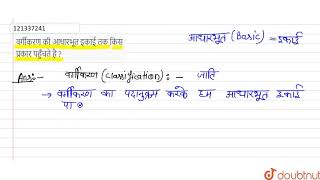 121337241
वर्गीकरण की आधारभूत इकाई तक किस
प्रकार पहुँचते है ?
आधारभूत (Basic) = इकाई
Ans:- वर्गीकरण (classification) : - जाति
→ वर्गीकरण का पदानुक्रम करके हम आधारभूत इकाई
पा
doubtnut